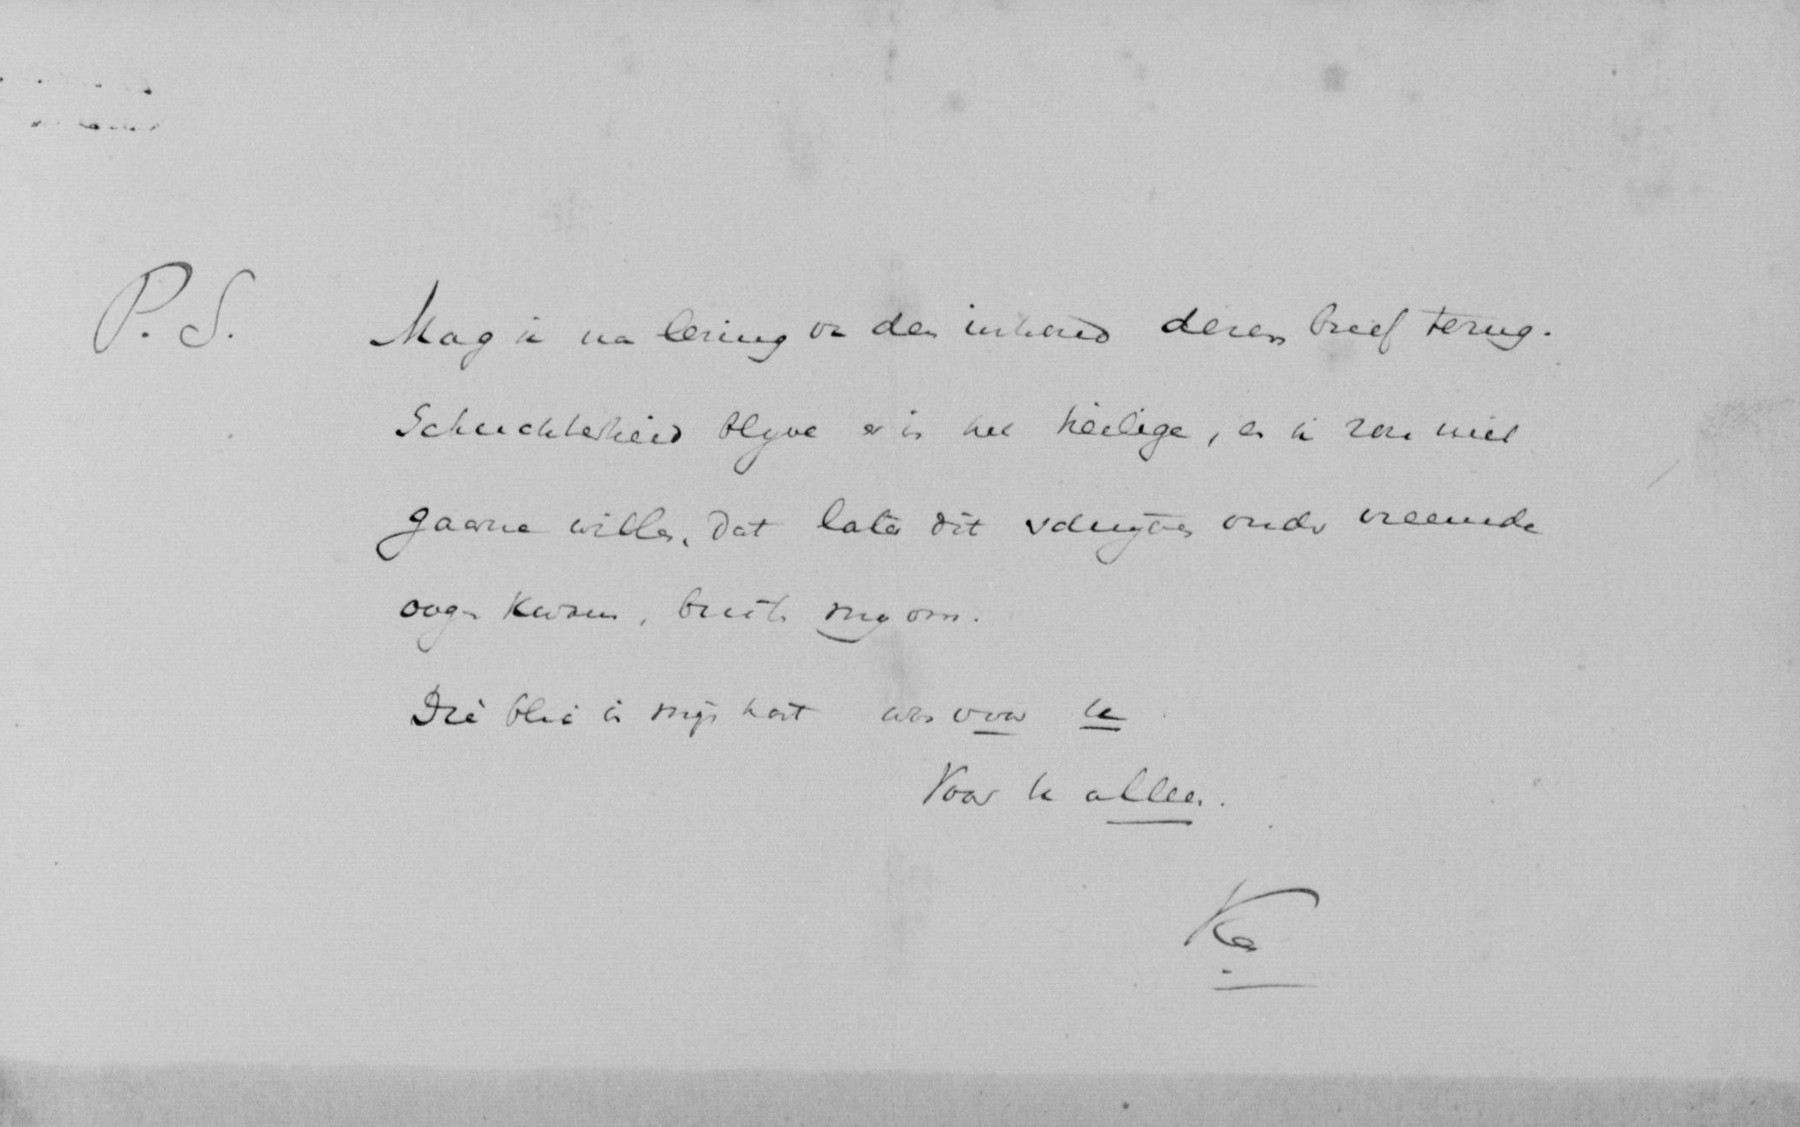 P.S. Mag ik na lezing van den inhoud dezen brief terug.
Schuchterheid blyve er in het heilige, en ik zou niet
gaarne willen, dat later dit onder vreemde
oogen kwam, buiten my om.
Die blik in mijn hart was voor U
Voor U alleen.